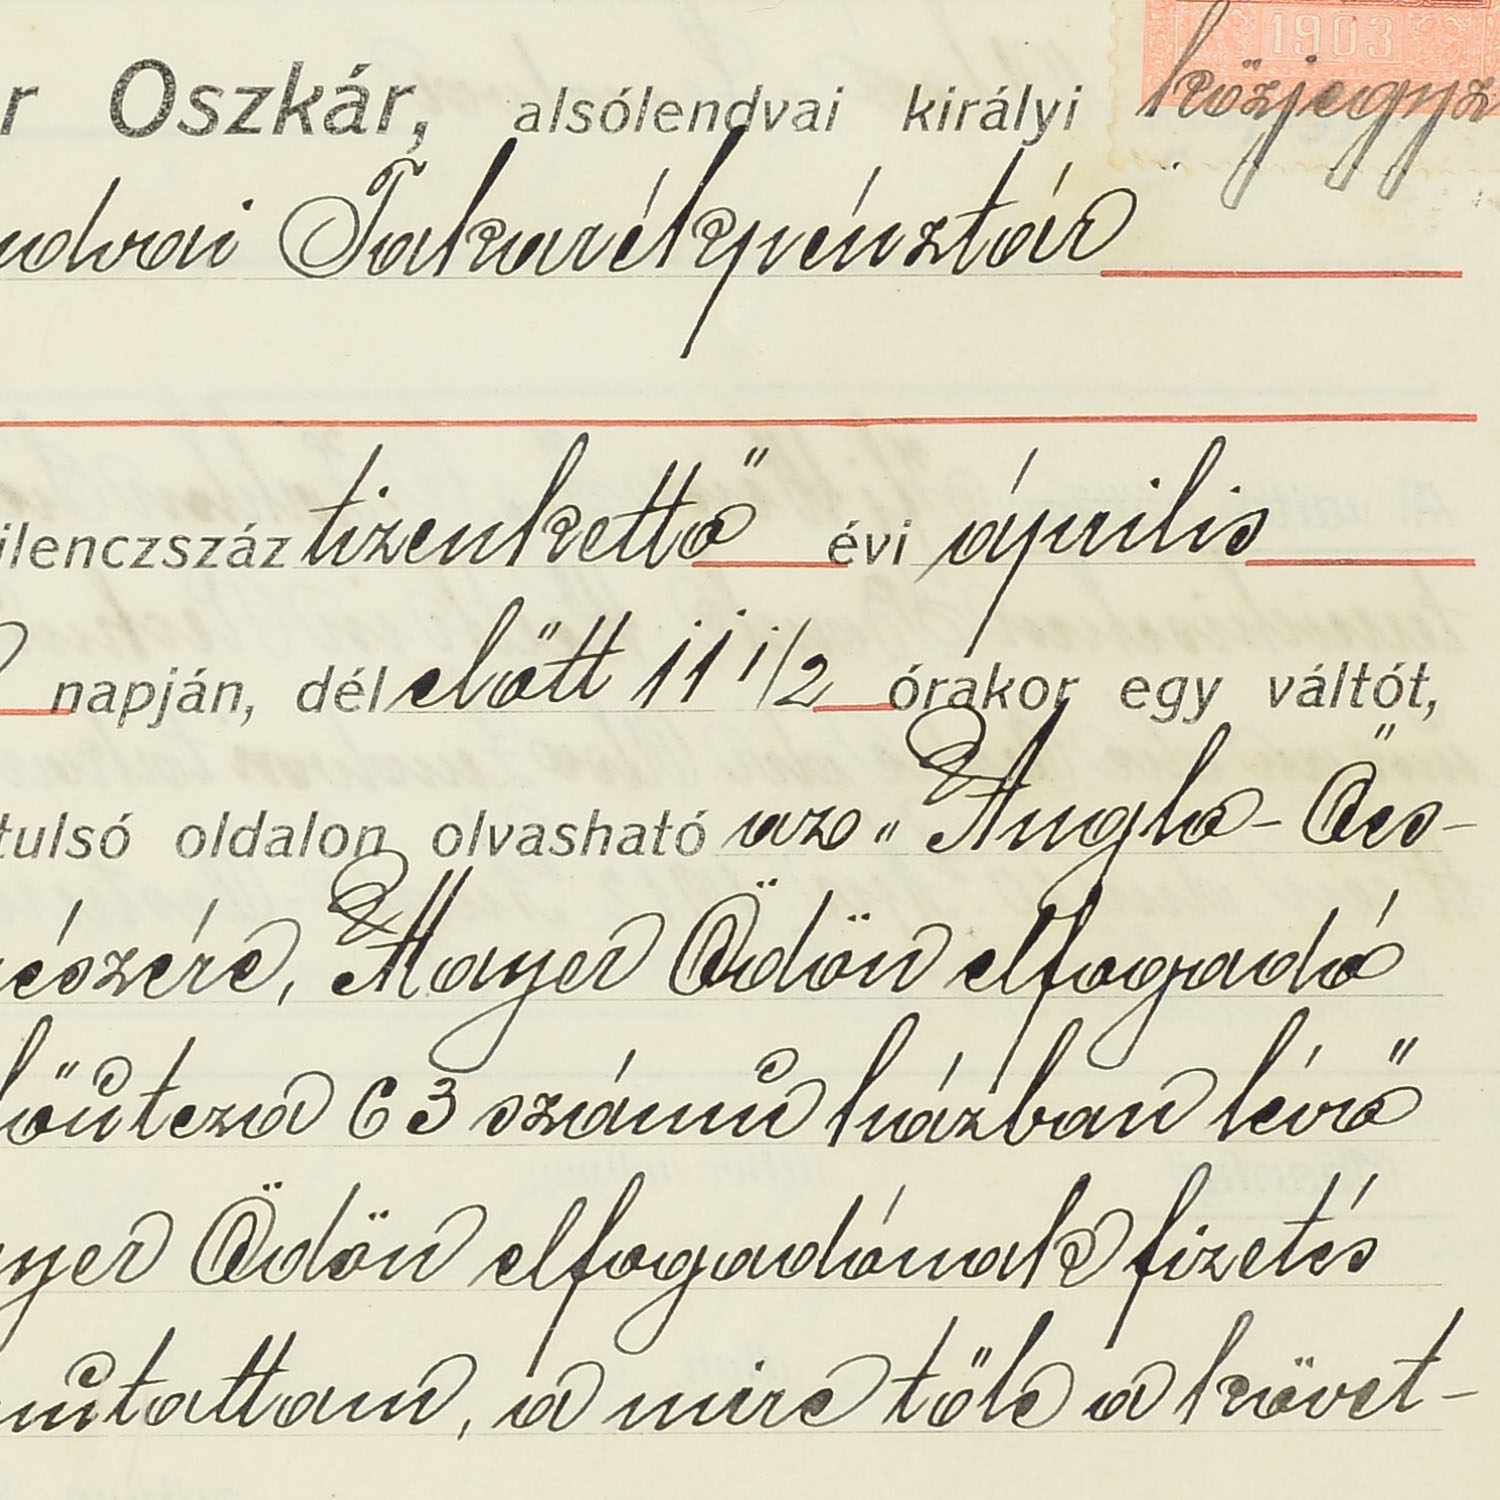 1903
r Oszkár, alsólendvai királyi közjegyz
ndvai Takarékpénztár
ilenczszáz tizenkettő évi április
napján, dél előtt 11 1/2 órakor egy váltót,
tulsó oldalon olvasható az „Anglo-Ös-
részére, Mayer Ödön elfogadó
főútcza 63 számú házban lévő
yer Ödön elfogadónak fizetés
mutattam, a mire tőle a követ-